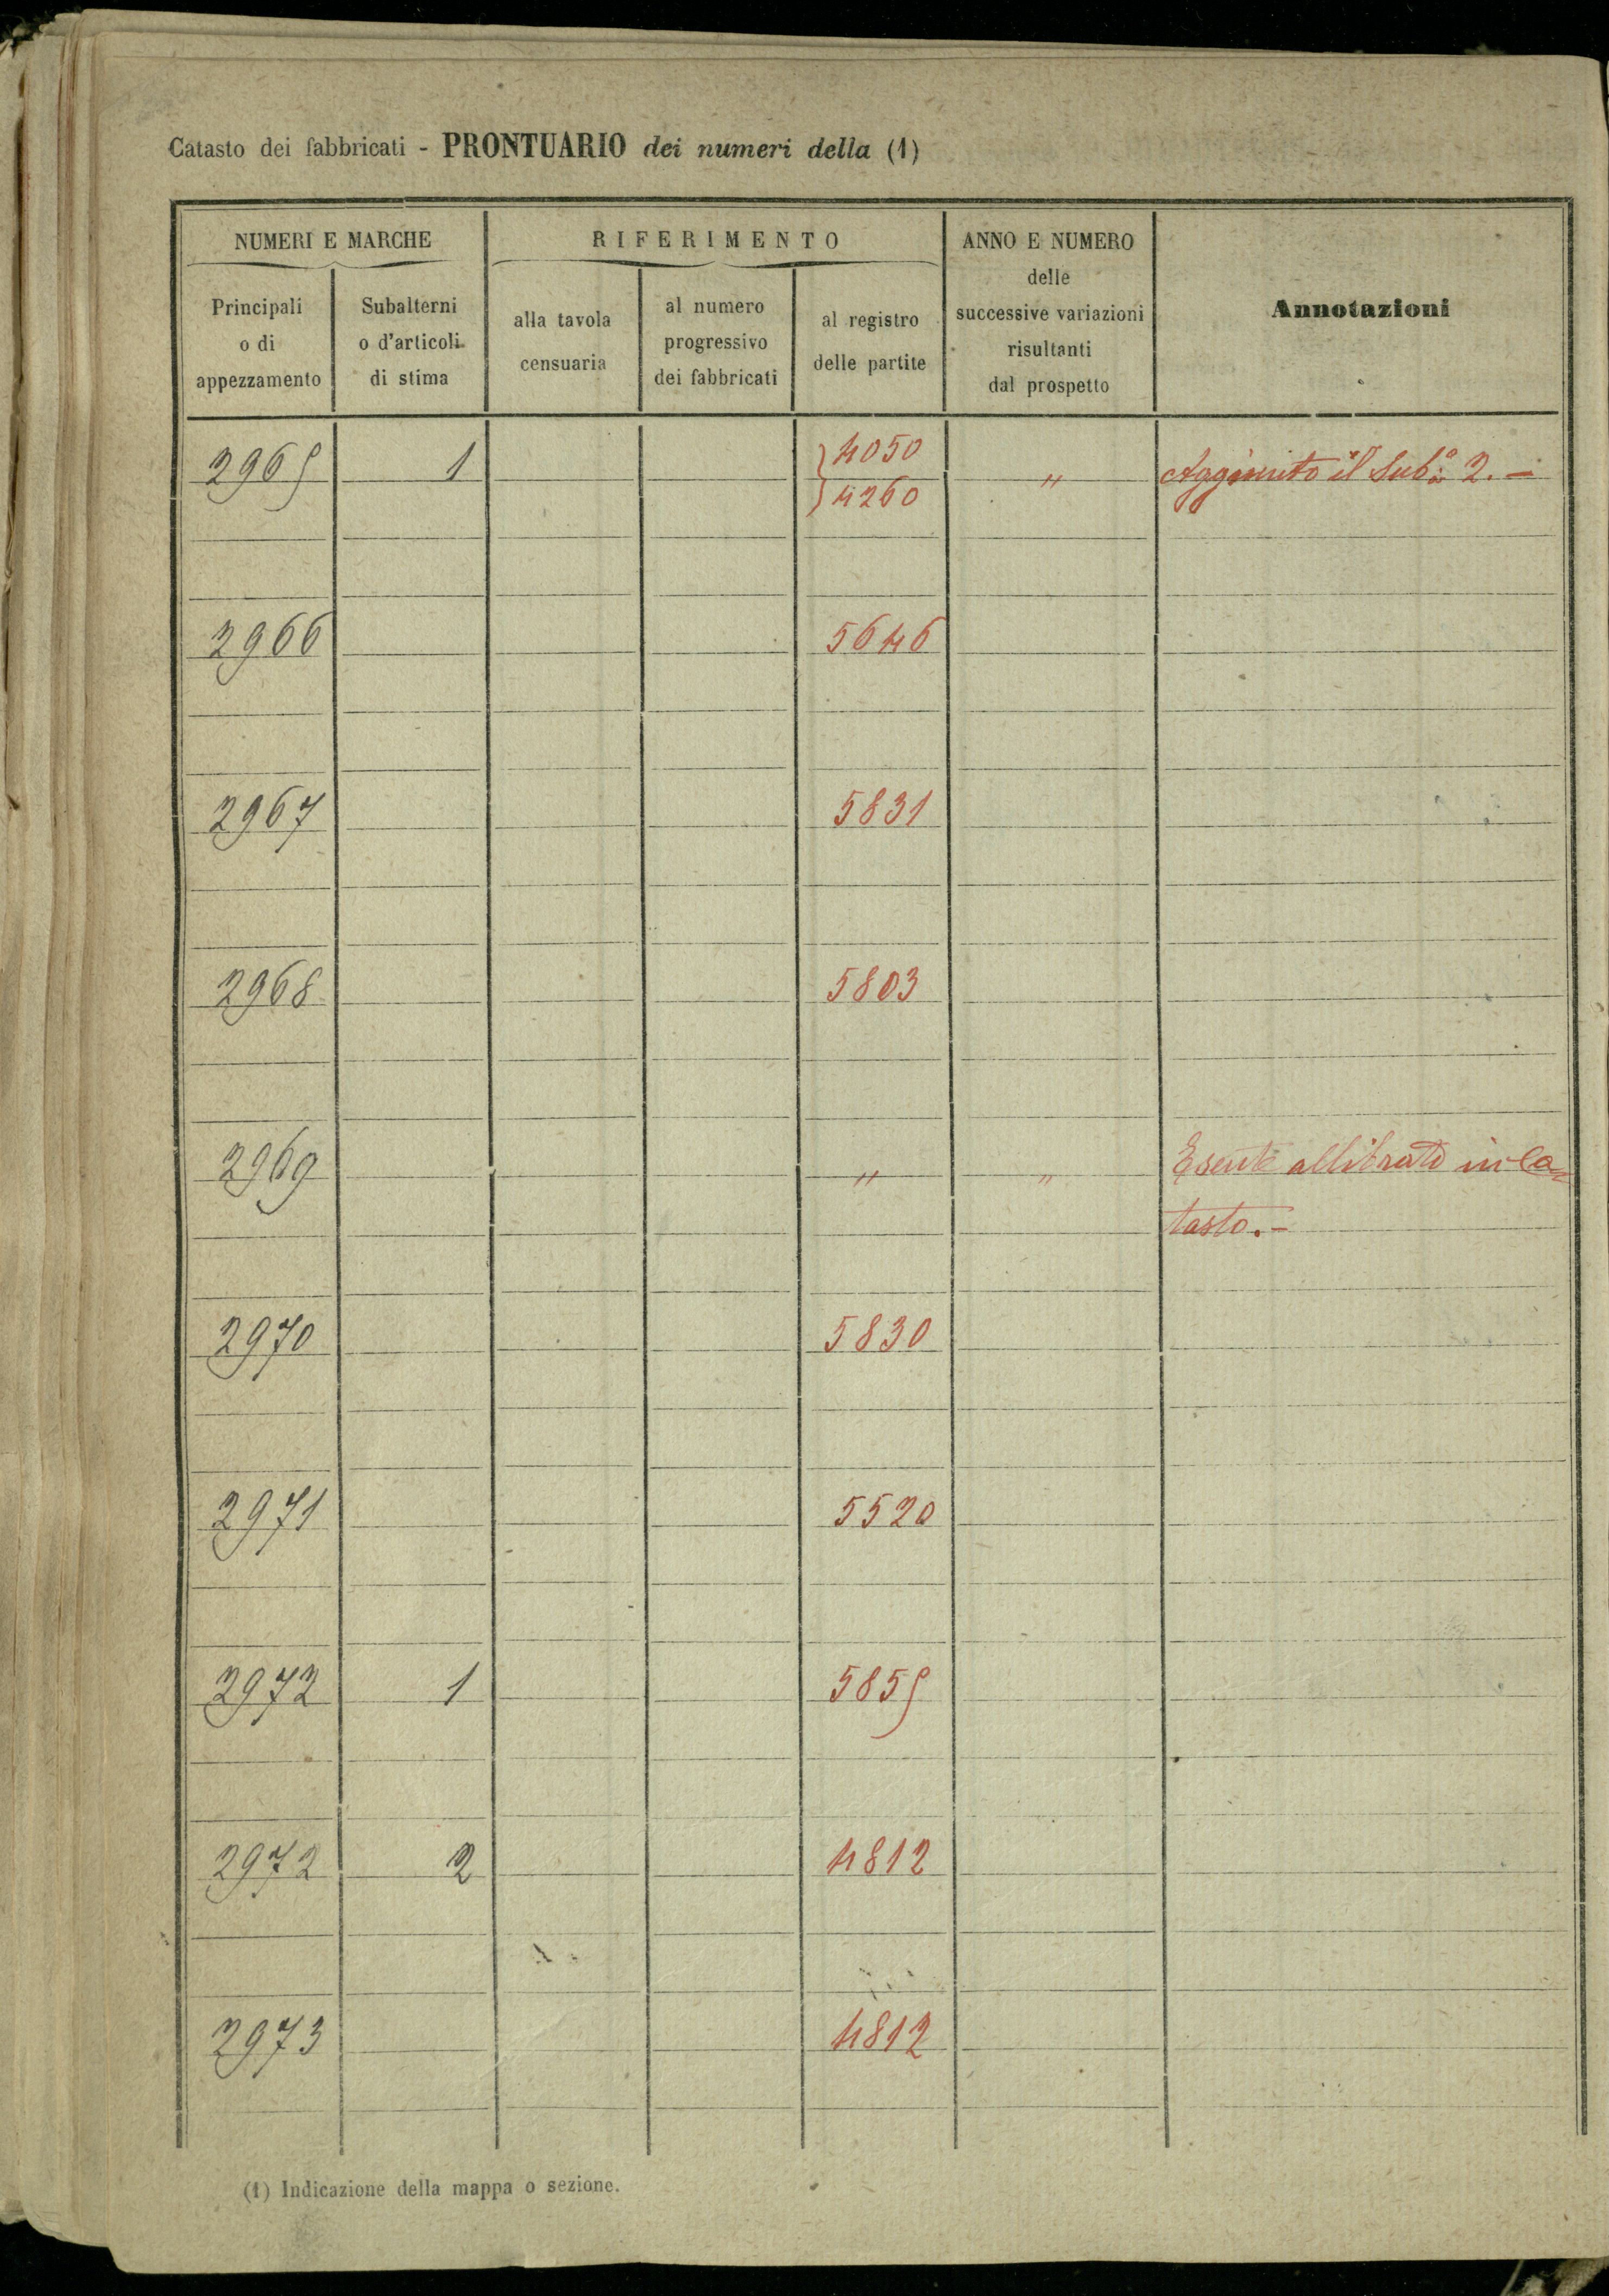 Catasto dei fabbricati - PRONTUARIO dei numeri della (1)
NUMERI E MARCHE RIFERIMENTO ANNO E NUMERO delle successive variazioni risultanti dal prospetto Annotazioni
Principali o di appezzamento Subalterni o d'articoli di stima alla tavola censuaria al numero progressivo dei fabbricati al registro delle partite
2965 1 4050 " Aggiunto il Sub.º 2. —
4260
2966 5646
2967 5831
2968 5803
2969 " " Esente allibrato in Ca=
tasto. —
2970 5830
2971 5520
2972 1 5855
2972 2 4812
2973 4812
(1) Indicazione della mappa o sezione.